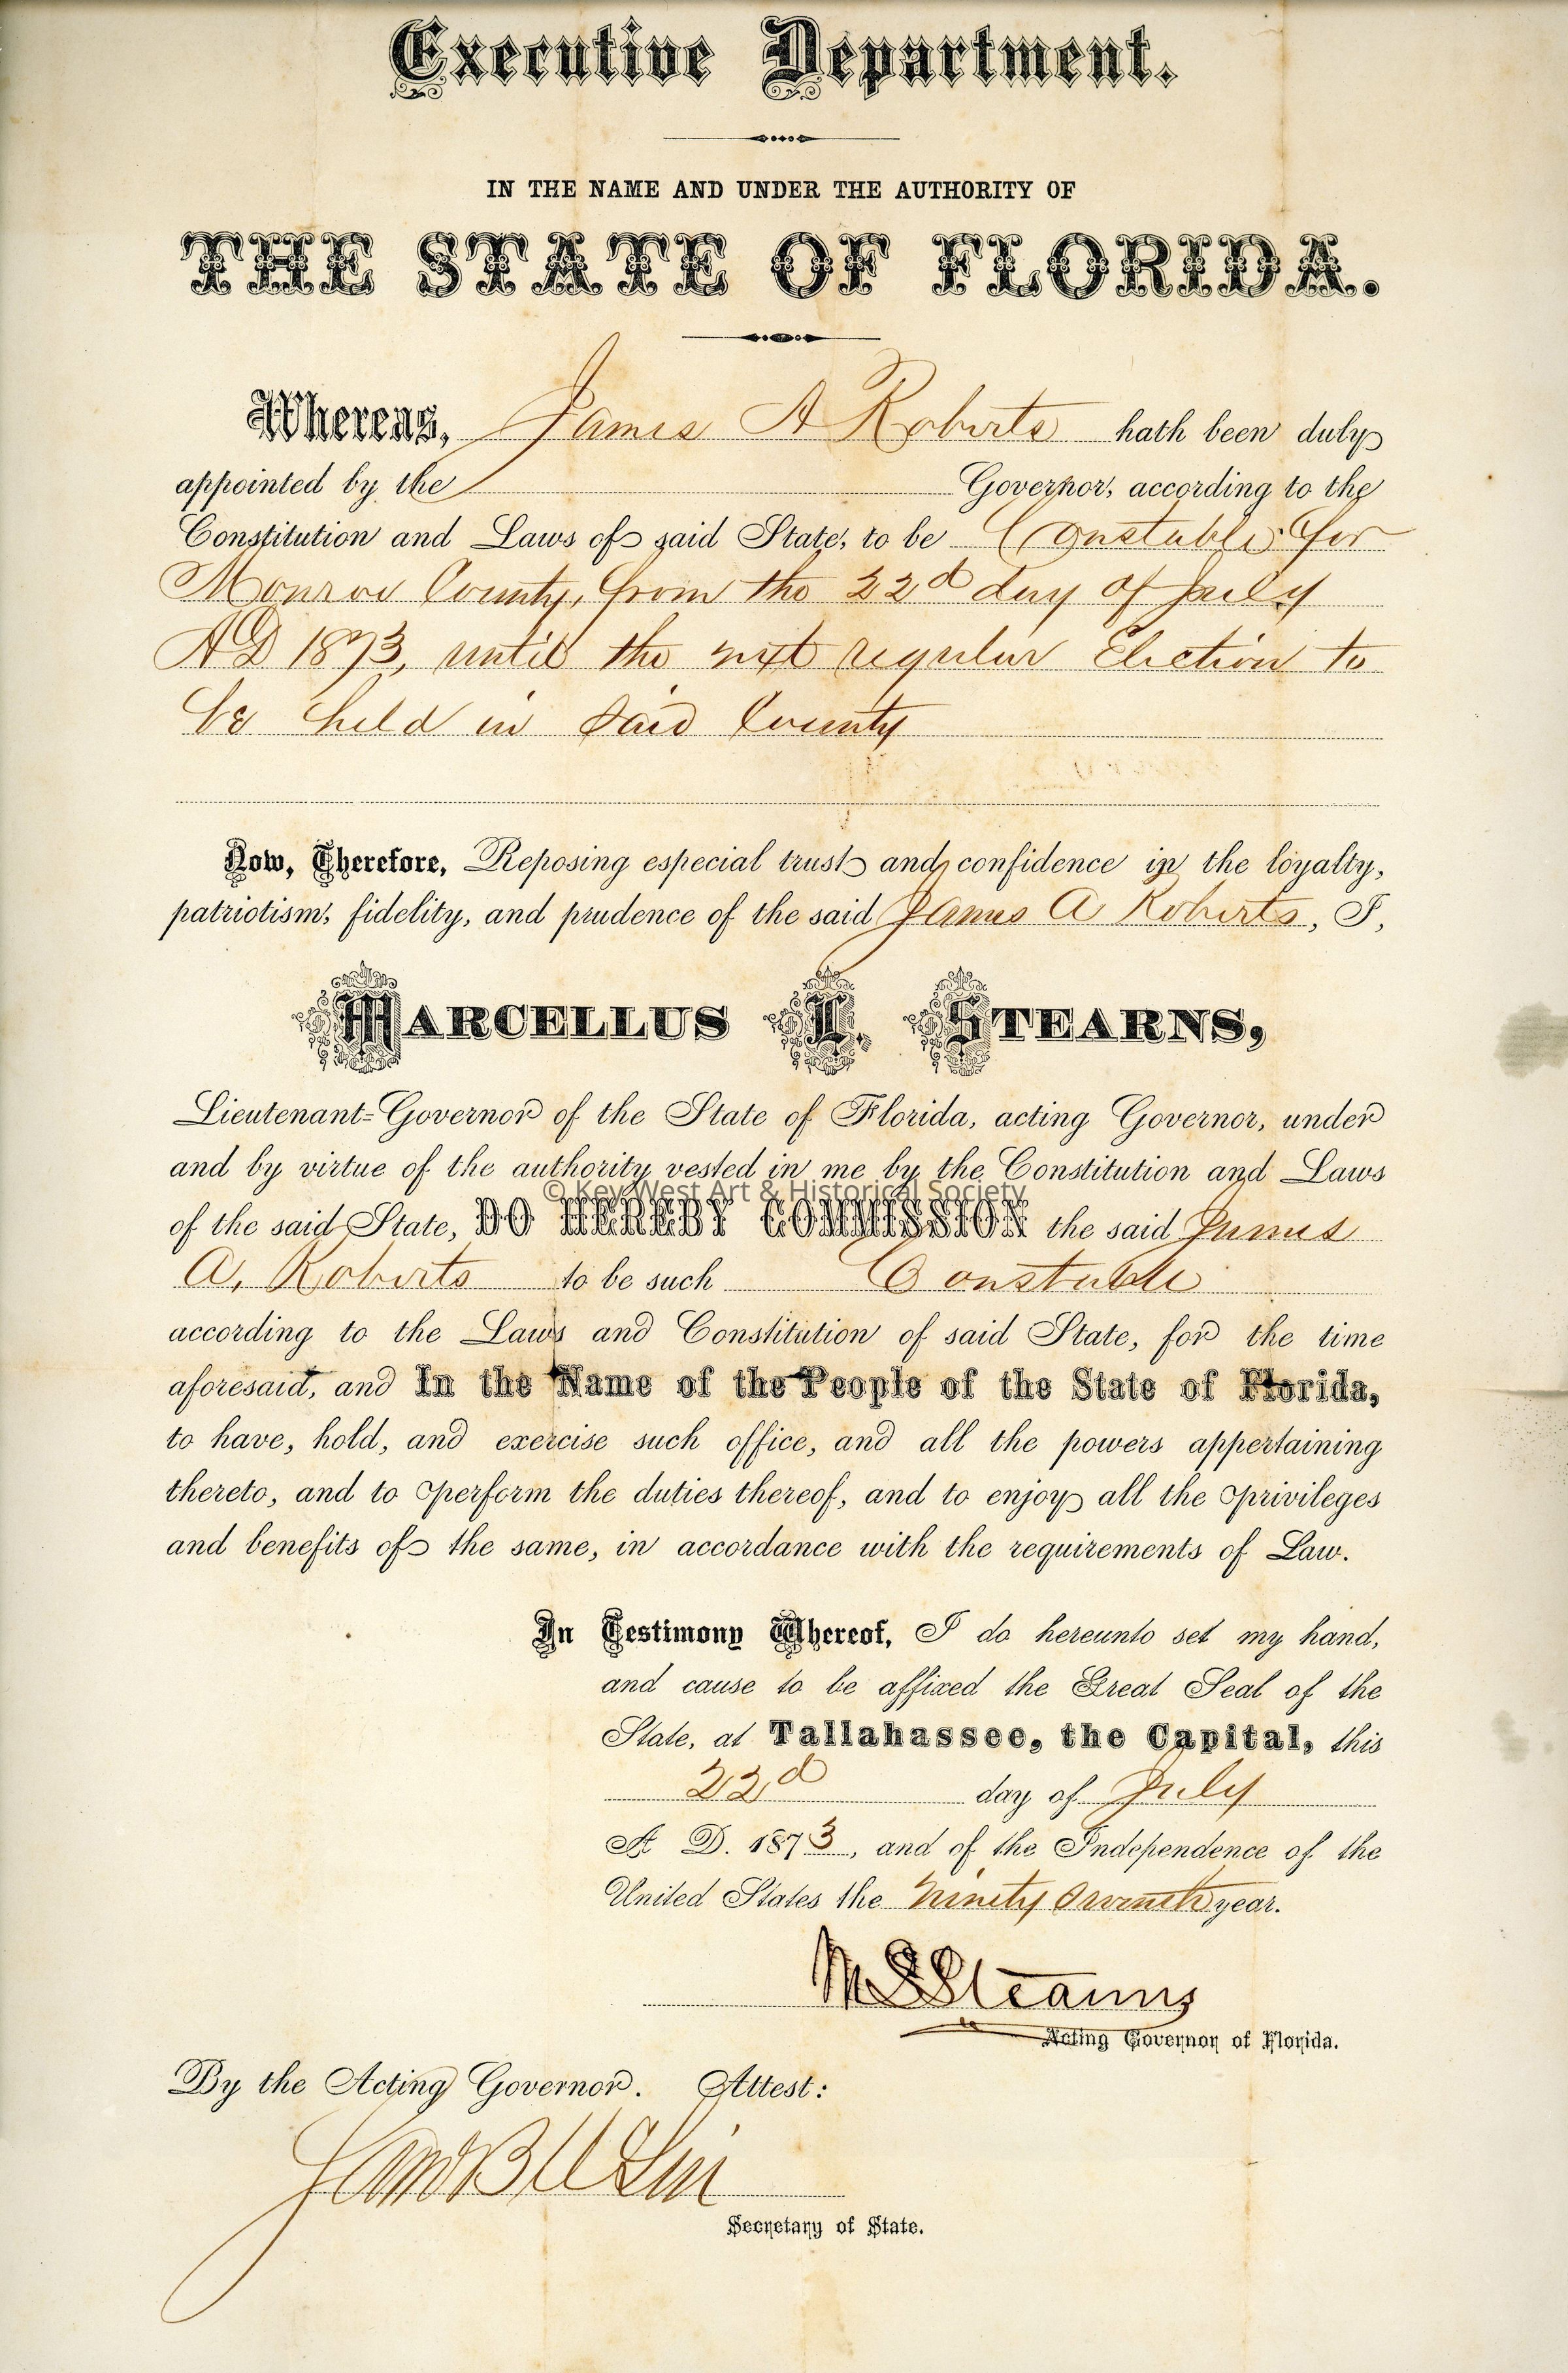 Executive Department.
IN THE NAME AND UNDER THE AUTHORITY OF
THE STATE OF FLORIDA.
Whereas, James A Roberts hath been duly
appointed by the Governor, according to the
Constitution and Laws of said State, to be Constable for
Monroe County, from the 22d day of July
AD 1873, until the next regular Election to
be held in said County
Now, Therefore, Reposing especial trust and confidence in the loyalty,
patriotism, fidelity, and prudence of the said James A Roberts, I,
MARCELLUS L. STEARNS,
Lieutenant-Governor of the State of Florida, acting Governor, under
and by virtue of the authority vested in me by the Constitution and Laws
© Key West Art & Historical Society
of the said State, DO HEREBY COMMISSION the said James
A. Roberts to be such Constable
according to the Laws and Constitution of said State, for the time
aforesaid, and In the Name of the People of the State of Florida,
to have, hold, and exercise such office, and all the powers appertaining
thereto, and to perform the duties thereof, and to enjoy all the privileges
and benefits of the same, in accordance with the requirements of Law.
In Testimony Whereof, I do hereunto set my hand,
and cause to be affixed the Great Seal of the
State, at Tallahassee, the Capital, this
22d day of July
A. D. 1873, and of the Independence of the
United States the Ninety Seventh year.
M L Stearns
Acting Governor of Florida.
By the Acting Governor. Attest:
Secretary of State.